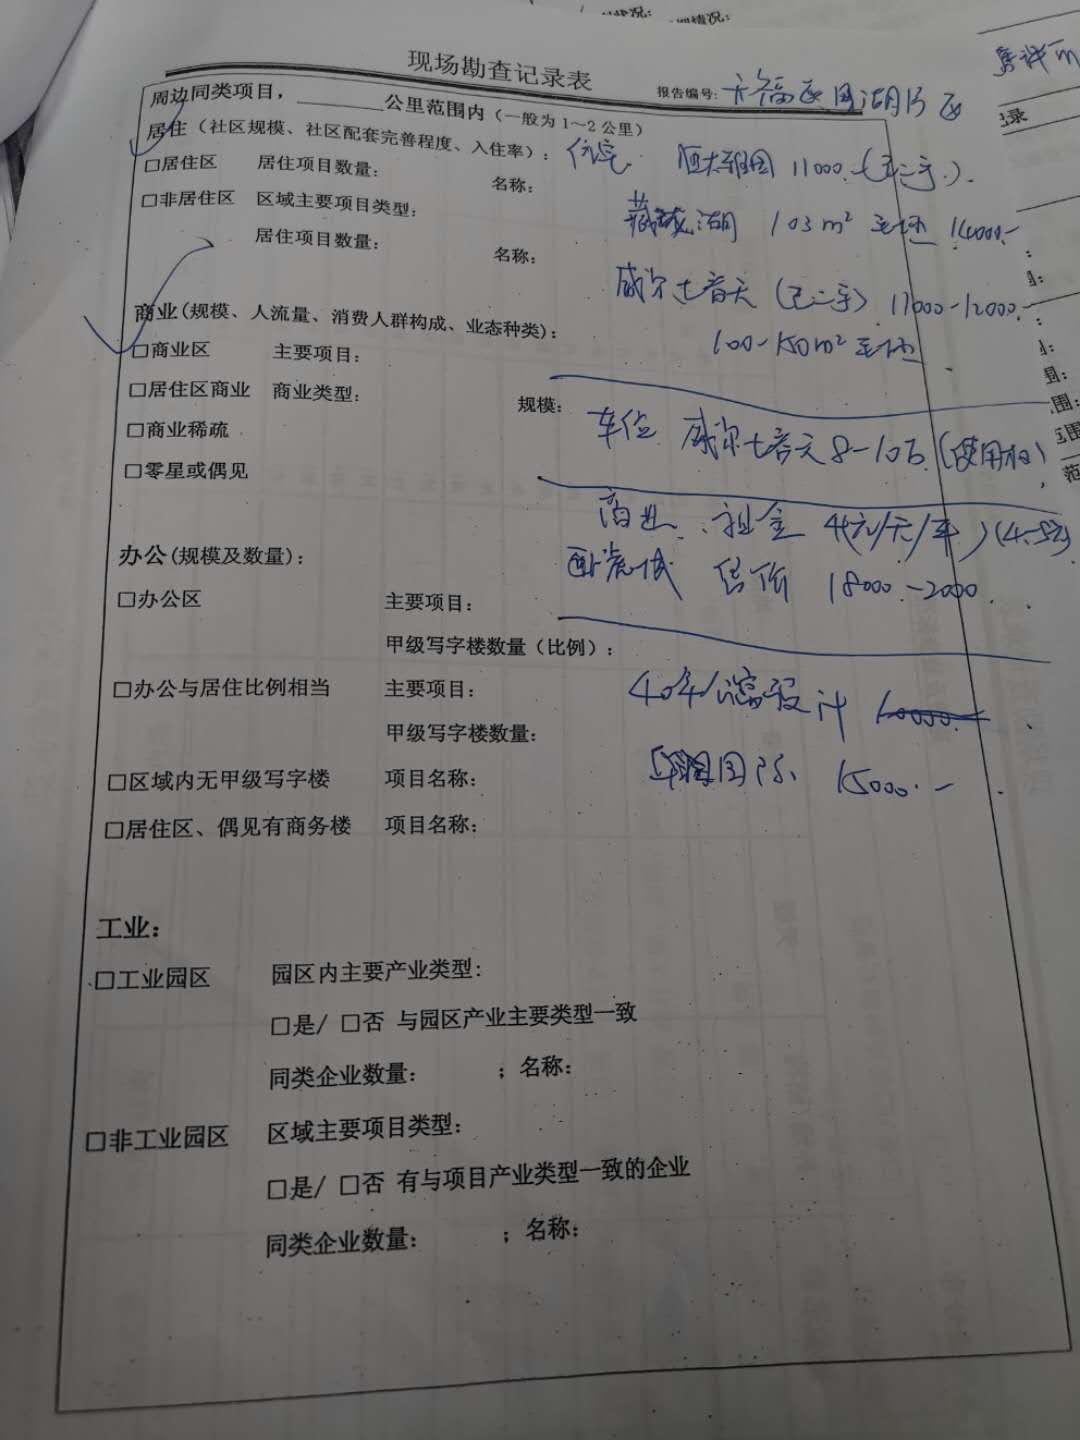 现场勘查记录表
报告编号:
周边同类项目，________公里范围内（一般为1～2公里）
居住（社区规模、社区配套完善程度、入住率）：住宅 恒大雅园 11000.（毛二手）.
□居住区 居住项目数量： 名称：
□非居住区 区域主要项目类型： 藏龙湖 103m² 毛坯 14000.-
居住项目数量： 名称：
威尔士春天（毛二手）11000-12000.-
商业(规模、人流量、消费人群构成、业态种类)：
100-150m² 毛坯
□商业区 主要项目：
□居住区商业 商业类型： 规模：
车位 威尔士春天 8-10万（使用权）
□商业稀疏
□零星或偶见
商业 租金 4元/天/平
办公(规模及数量)：
售价 18000.-2000
□办公区 主要项目：
甲级写字楼数量（比例）：
□办公与居住比例相当 主要项目： 40年 设计
甲级写字楼数量：
国际 15000.-
□区域内无甲级写字楼 项目名称：
□居住区、偶见有商务楼 项目名称：
工业：
□工业园区 园区内主要产业类型：
□是/ □否 与园区产业主要类型一致
同类企业数量： ；名称：
□非工业园区 区域主要项目类型：
□是/ □否 有与项目产业类型一致的企业
同类企业数量： ；名称：